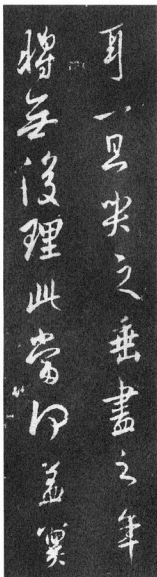 耳一旦哭之垂盡之年
將無復理此當何益冥